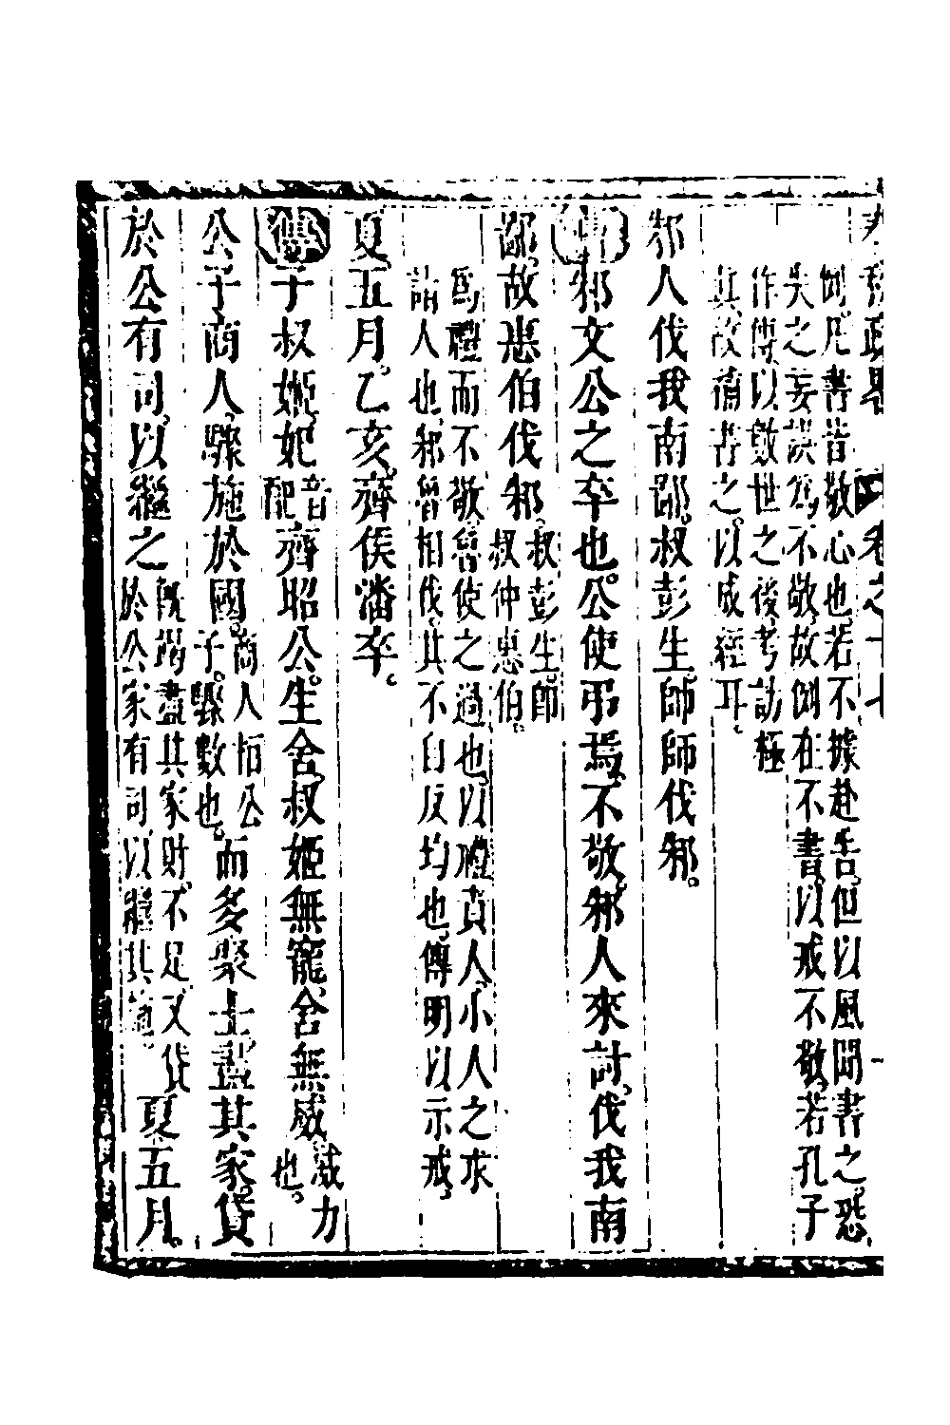 例凡書皆敬心也若不據赴告但以風聞書之恐
失之妄誤為不敬故例在不書以戒不敬若孔子
作傳以斅世之後考訪極
其故備書之以成經耳
邾人伐我南鄙叔彭生師師伐邾
傳邾文公之卒也公使弔焉不敬邾人來討伐我南
鄙故惠伯伐邾叔彭生師
叔仲惠伯
為禮而不敬魯使之過也以禮責人小人之求
諸人也邾魯相伐其不自反均也傳明以示戒
夏五月乙亥齊侯潘卒
傳子叔姬妃音
配齊昭公生舍叔姬無寵舍無威威力
也
公子商人驟施於國商人桓公
子驟數也而多聚士盡其家貸
於公有司以繼之既竭盡其家財不足又貸
於公家有司以繼其施夏五月